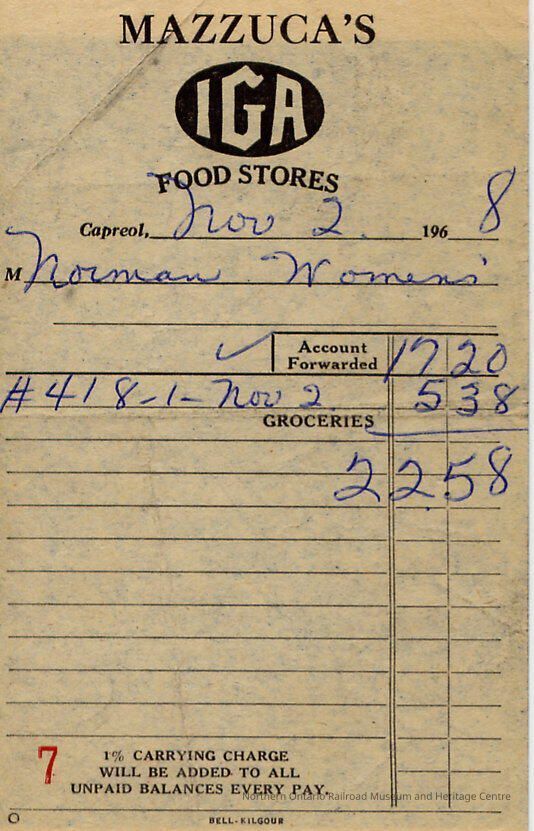 MAZZUCA'S
IGA
FOOD STORES
Capreol, Nov 2. 196 8
M Norman Womens'
Account
Forwarded 17 20
#418-1- Nov 2. 5 38
GROCERIES
22.58
7
1% CARRYING CHARGE
WILL BE ADDED TO ALL
UNPAID BALANCES EVERY PAY.
Northern Ontario Railroad Museum and Heritage Centre
BELL-KILGOUR